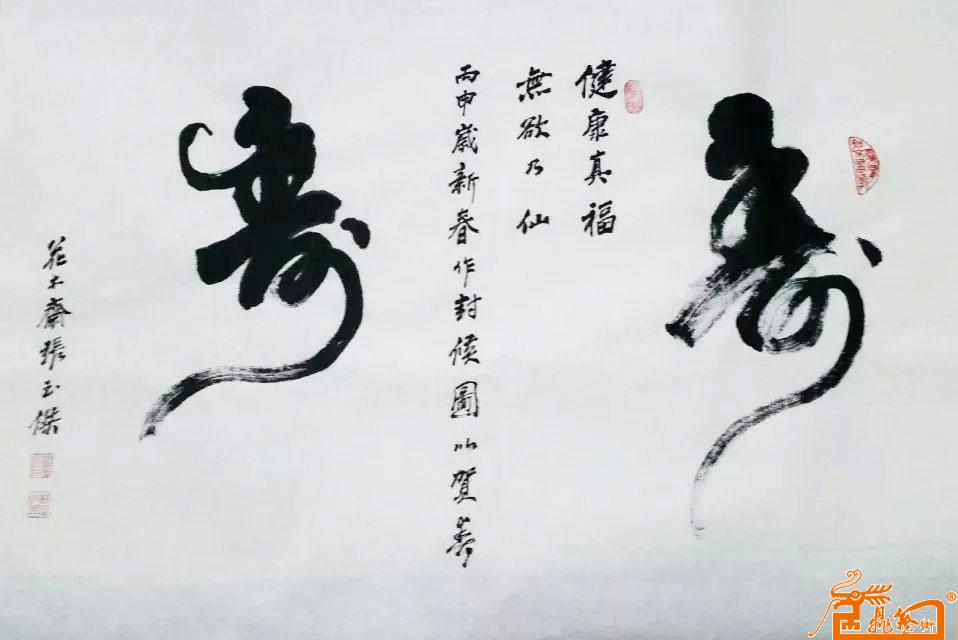 寿
健康真福
無欲乃仙
丙申歲新春作封候圖以賀寿
寿
花木齋張玉傑